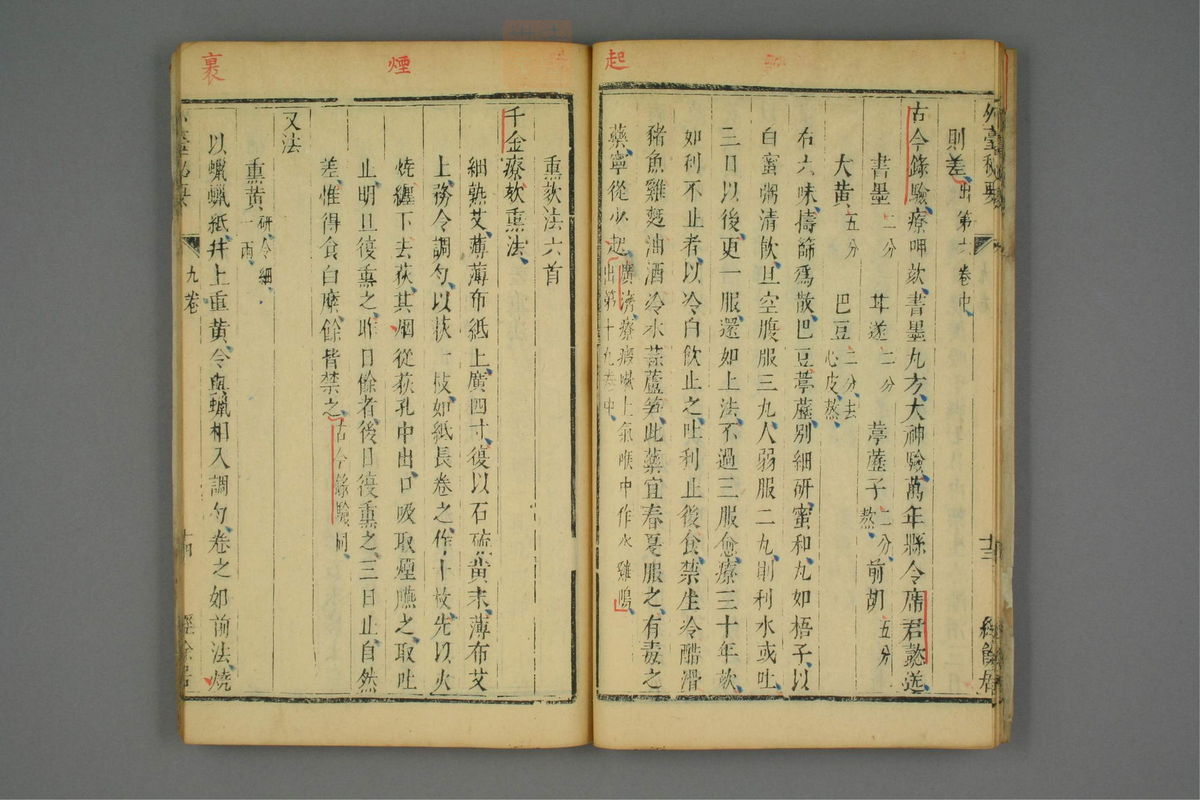 起
外臺秘要
十三
經餘居
則差出第六卷中
古今錄驗療呷欬書墨丸方大神驗萬年縣令席君懿送
書墨二分 甘遂二分 葶藶子二分熬 前胡五分
大黄五分 巴豆二分去心皮熬
右六味擣篩為散巴豆葶藶別細研蜜和丸如梧子以
白蜜粥清飲旦空腹服三丸人弱服二丸則利水或吐
三日以後更一服還如上法不過三服愈療三十年欬
如利不止者以冷白飲止之吐利止後食禁生冷酷滑
豬魚雞麪油酒冷水蒜蘆笋此藥宜春夏服之有毒之
藥寧從少起廣濟療瘕嗽上氣喉中作水雞鳴出第十九卷中
裏
煙
熏欬法六首
千金療欬熏法
細熟艾薄薄布紙上廣四寸復以石硫黄末薄布艾
上務令調勻以荻一枝如紙長卷之作十枚先以火
燒纏下去荻其烟從荻孔中出口吸取煙嚥之取吐
止明旦復熏之昨日餘者後日復熏之三日止自然
差惟得食白糜餘皆禁之古今錄驗同
又法
熏黄研令細一兩
以蠟蠟紙并上熏黄令與蠟相入調勻卷之如前法燒
九卷
十四
經餘居